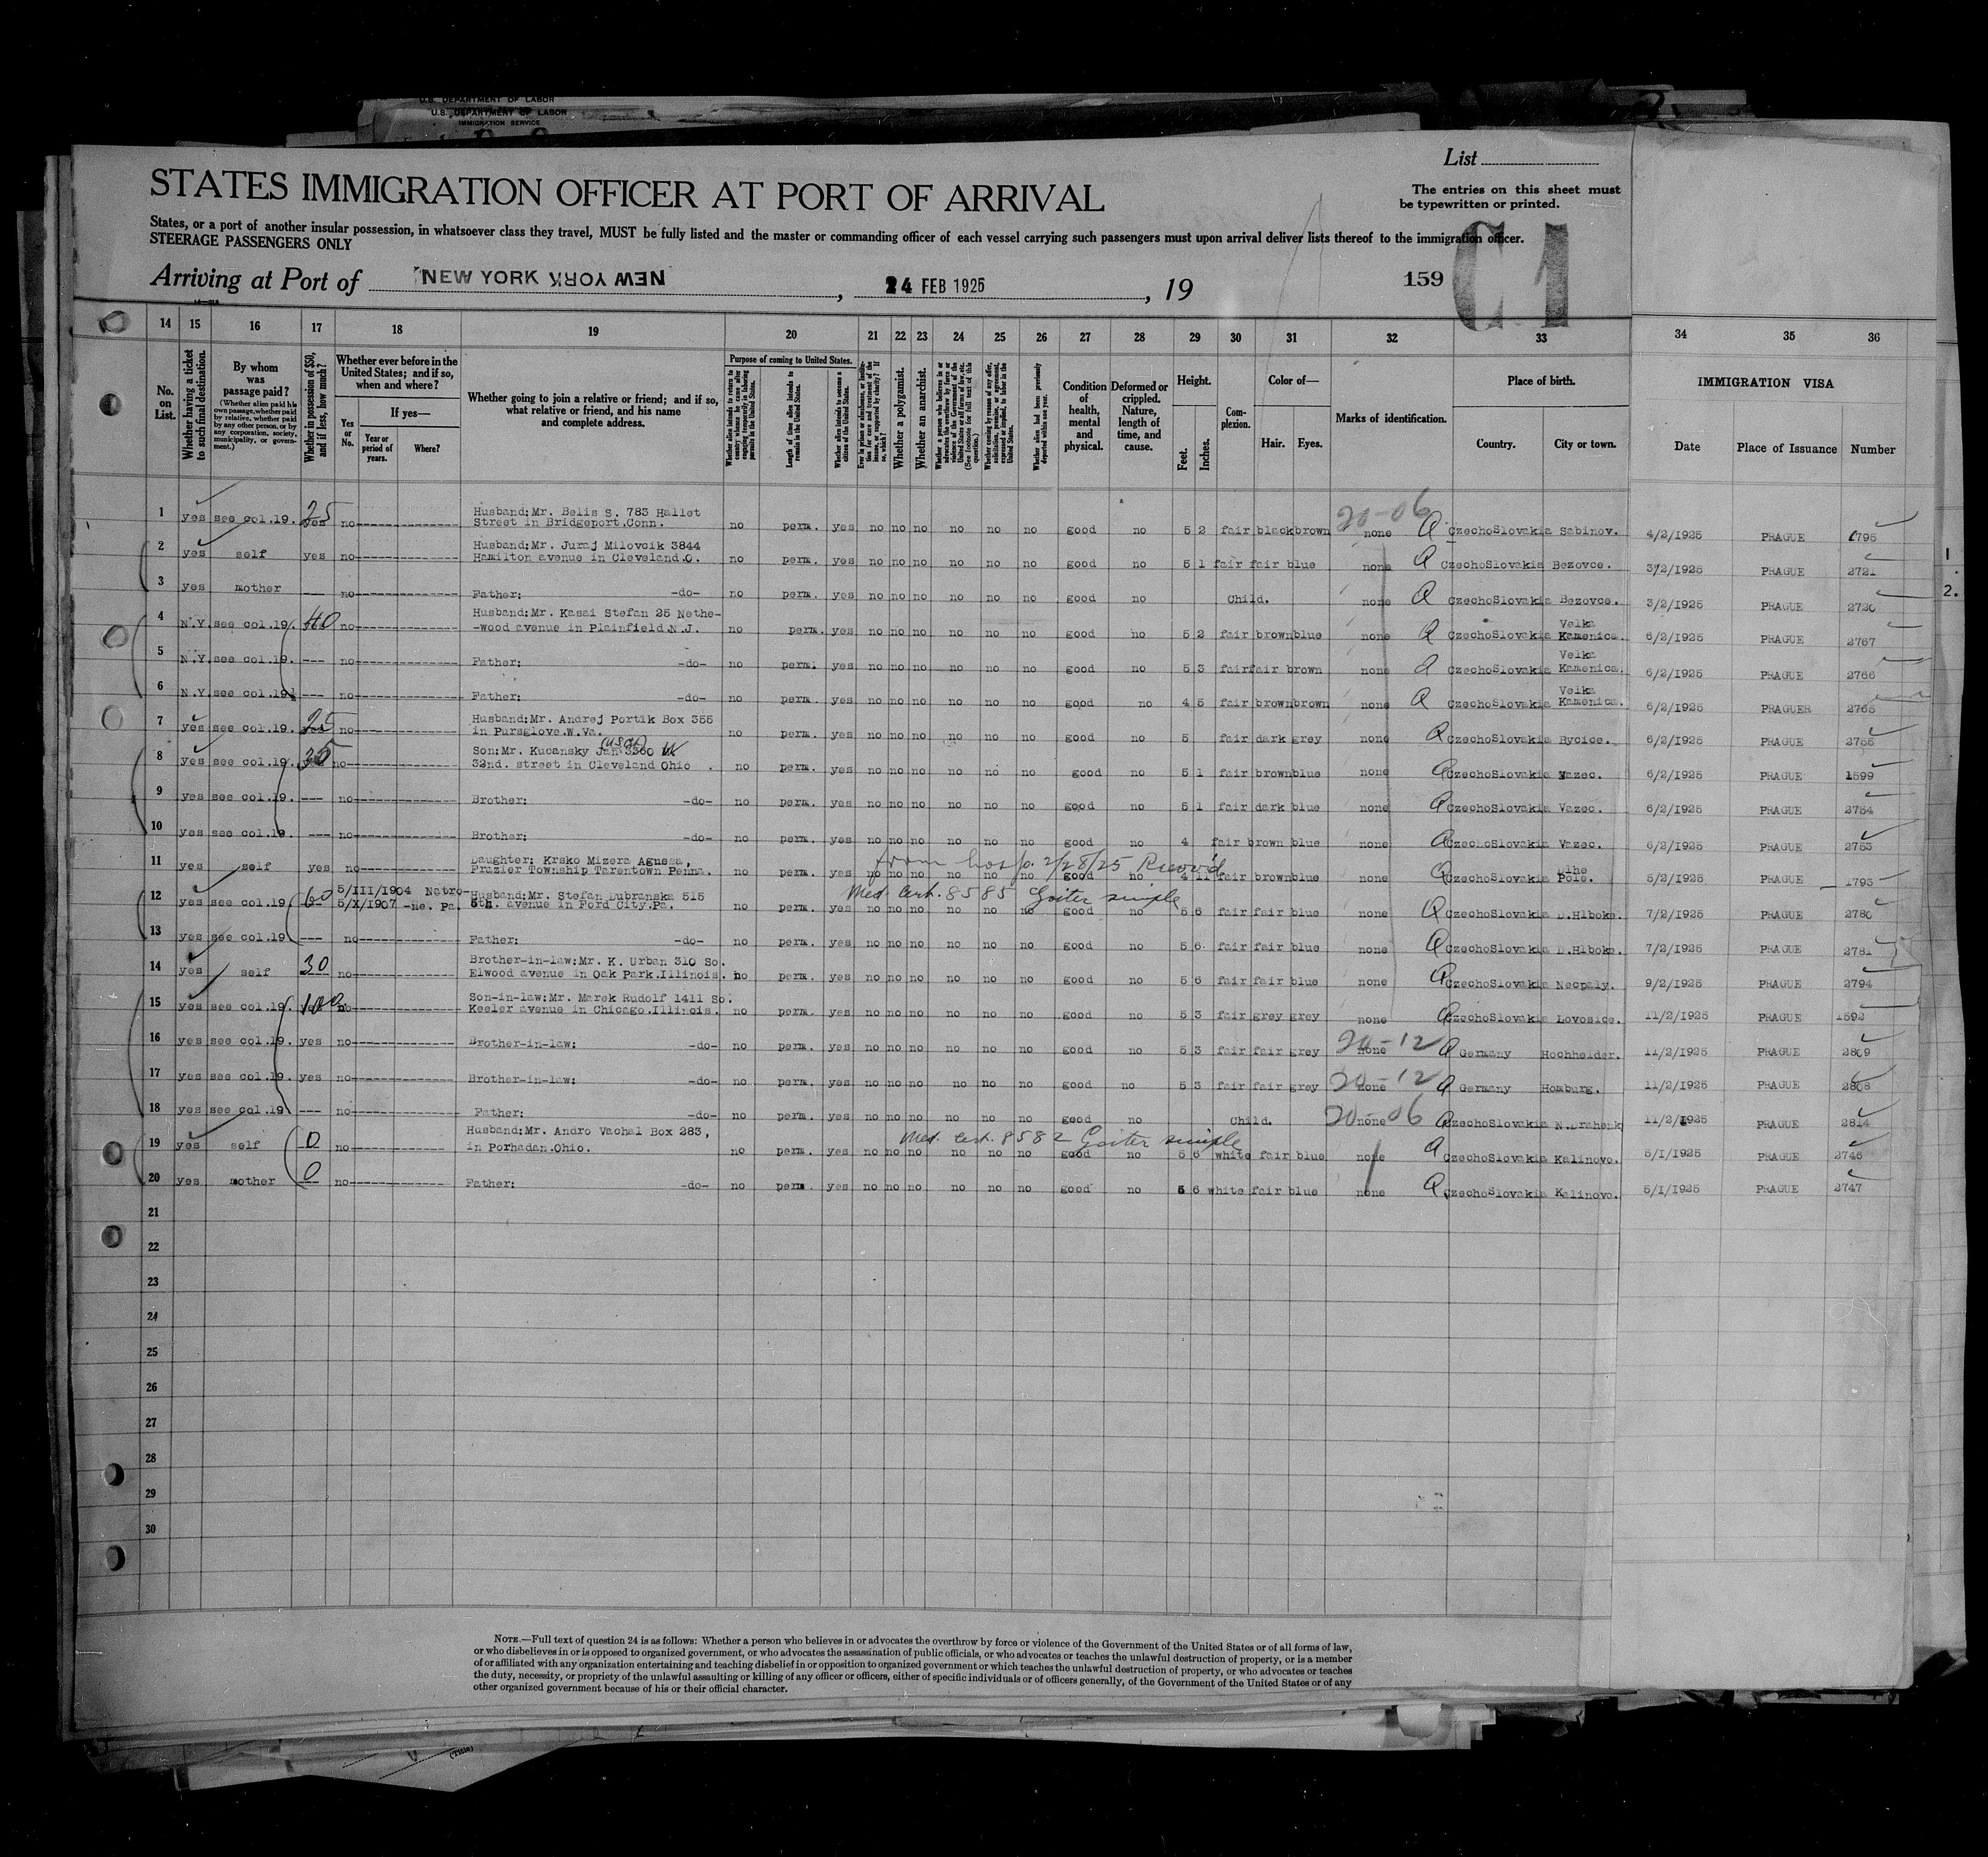 U.S. DEPARTMENT OF LABOR
U.S. DEPARTMENT OF LABOR
IMMIGRATION SERVICE
List
STATES IMMIGRATION OFFICER AT PORT OF ARRIVAL
The entries on this sheet must
be typewritten or printed.
States, or a port of another insular possession, in whatsoever class they travel, MUST be fully listed and the master or commanding officer of each vessel carrying such passengers must upon arrival deliver lists thereof to the immigration officer.
STEERAGE PASSENGERS ONLY
C1
Arriving at Port of NEW YORK NEW YORK, 24 FEB 1925, 19
159
14 15 16 17 18 19 20 21 22 23 24 25 26 27 28 29 30 31 32 33 34 35 36
No. on List.
Whether having a ticket to such final destination.
By whom was passage paid?
(Whether alien paid his own passage, whether paid by relative, whether paid by any other person, or by any corporation, society, municipality, or government.)
Whether in possession of $50, and if less, how much?
Whether ever before in the United States; and if so, when and where?
Yes or No.
If yes—
Year or period of years.
Where?
Whether going to join a relative or friend; and if so, what relative or friend, and his name and complete address.
Purpose of coming to United States.
Length of time alien intends to remain in the United States.
Whether alien intends to become a citizen of the United States.
Whether a polygamist.
Whether an anarchist.
Condition of health, mental and physical.
Deformed or crippled. Nature, length of time, and cause.
Height.
Feet. Inches.
Complexion.
Color of—
Hair. Eyes.
Marks of identification.
Place of birth.
Country. City or town.
IMMIGRATION VISA
Date Place of Issuance Number
1 yes see col.19. 25 yes no Husband:Mr. Belis S. 783 Hallet Street in Bridgeport.Conn. no perm. yes no no no no no no good no 5 2 fair black brown 20-06 none CzechoSlovakia Sabinov. 4/2/1925 PRAGUE
2 yes self yes no Husband:Mr. Juraj Milovcik 3844 Hamilton avenue in Cleveland.O. no perm. yes no no no no no no good no 5 1 fair fair blue none CzechoSlovakia Bezovce. 3/2/1925 PRAGUE 2721
3 yes mother --- no Father: -do- no perm. yes no no no no no no good no Child. none CzechoSlovakia Bezovce. 3/2/1925 PRAGUE 2720
4 N.Y. see col.19. 40 no Husband:Mr. Kasai Stefan 25 Nethe--wood avenue in Plainfield.N.J. no perm. yes no no no no no no good no 5 2 fair brown blue none CzechoSlovakia Velka Kamenica. 6/2/1925 PRAGUE 2767
5 N.Y. see col.19. --- no Father: -do- no perm. yes no no no no no no good no 5 3 fair fair brown none CzechoSlovakia Velka Kamenica. 6/2/1925 PRAGUE 2766
6 N.Y. see col.19. --- no Father: -do- no perm. yes no no no no no no good no 4 5 fair brown brown none CzechoSlovakia Velka Kamenica. 6/2/1925 PRAGUER 2765
7 yes see col.19. 25 no Husband:Mr. Andrej Portik Box 355 in Pursglove.W.Va. no perm. yes no no no no no no good no 5 fair dark grey none CzechoSlovakia Bycice. 6/2/1925 PRAGUE
8 yes see col.19. no Son:Mr. Kucansky Jan (USC) 3360 W 32nd. street in Cleveland Ohio. no perm. yes no no no no no no good no 5 1 fair brown blue none CzechoSlovakia Vazec. 6/2/1925 PRAGUE 1599
9 yes see col.19. --- no Brother: -do- no perm. yes no no no no no no good no 5 1 fair dark blue none CzechoSlovakia Vazec. 6/2/1925 PRAGUE 2754
10 yes see col.19. --- no Brother: -do- no perm. yes no no no no no no good no 4 fair brown blue none CzechoSlovakia Vazec. 6/2/1925 PRAGUE 2753
from hosp. 2/28/25
11 yes self yes no Daughter: Krsko Mizera Agnesa, Frazier Township Tarentown Penna. no perm. yes no no no no no no good no 4 11 fair brown blue none CzechoSlovakia Dlhe Pole. 5/2/1925 PRAGUE 1793
Med Cert. 8585 Goiter simple
12 yes see col.19 60 5/III/1904 Natro- 5/X/1907 -ne. Pa. Husband:Mr. Stefan Dubranska 515 avenue in Ford City.Pa. no perm. yes no no no no no no good no 5 6 fair fair blue none CzechoSlovakia D.Hlboke. 7/2/1925 PRAGUE 2780
13 yes see col.19 --- no Father: -do- no perm. yes no no no no no no good no 5 6 fair fair blue none CzechoSlovakia D.Hlboke. 7/2/1925 PRAGUE 2781
14 yes self 30 no Brother-in-law:Mr. K. Urban 310 So. Elwood avenue in Oak Park.Illinois. no perm. yes no no no no no no good no 5 6 fair fair blue none CzechoSlovakia Necpaly. 9/2/1925 PRAGUE 2794
15 yes see col.19. 100 no Son-in-law:Mr. Marek Rudolf 1411 So. Keeler avenue in Chicago.Illinois. no perm. yes no no no no no no good no 5 3 fair grey grey none CzechoSlovakia Lovosice. 11/2/1925 PRAGUE 1592
16 yes see col.19. yes no Brother-in-law: -do- no perm. yes no no no no no no good no 5 3 fair fair grey 20-12 none Germany Hochhelder. 11/2/1925 PRAGUE 2809
17 yes see col.19. yes no Brother-in-law: -do- no perm. yes no no no no no no good no 5 3 fair fair grey 20-12 none Germany Homburg. 11/2/1925 PRAGUE 2808
18 yes see col.19 --- no Father: -do- no perm. yes no no no no no no good no Child. 20-06 none CzechoSlovakia 11/2/1925 PRAGUE 2814
Med. Cert. 8582 Goiter simple
19 yes self 0 no Husband:Mr. Andro Vachal Box 283, in Porhadan.Ohio. no perm. yes no no no no no no good no 5 6 white fair blue none CzechoSlovakia Kalinovo. 5/1/1925 PRAGUE 2746
20 yes mother 0 no Father: -do- no perm. yes no no no no no no good no 5 6 white fair blue none CzechoSlovakia Kalinovo. 5/1/1925 PRAGUE 2747
21
22
23
24
25
26
27
28
29
30
1
2.
NOTE.—Full text of question 24 is as follows: Whether a person who believes in or advocates the overthrow by force or violence of the Government of the United States or of all forms of law,
or who disbelieves in or is opposed to organized government, or who advocates the assassination of public officials, or who advocates or teaches the unlawful destruction of property, or is a member
of or affiliated with any organization entertaining and teaching disbelief in or opposition to organized government or which teaches the unlawful destruction of property, or who advocates or teaches
the duty, necessity, or propriety of the unlawful assaulting or killing of any officer or officers, either of specific individuals or of officers generally, of the Government of the United States or of any
other organized government because of his or their official character.
(Title)